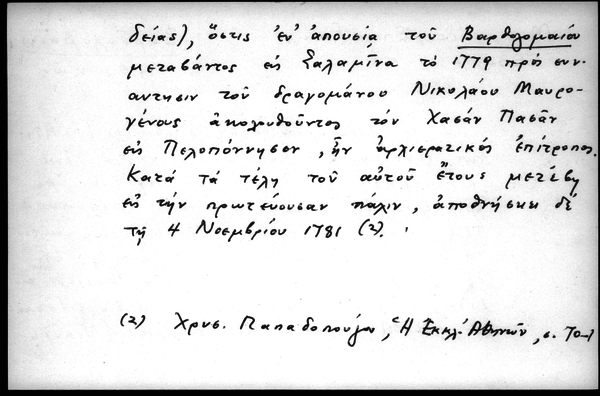 δείας), ὅστις ἐν ἀπουσίᾳ τοῦ Βαρθολομαίου
μεταβάντος εἰς Σαλαμῖνα τὸ 1779 πρὸς συν-
άντησιν τοῦ δραγομάνου Νικολάου Μαυρο-
γένους ἀκολουθοῦντος τὸν Χασάν Πασᾶν
εἰς Πελοπόννησον, ἦν ἀρχιερατικός ἐπίτροπος.
Κατά τά τέλη τοῦ αὐτοῦ ἔτους μετέβη
εἰς τήν πρωτεύουσαν πάλιν, ἀποθνήσκει δέ
τῇ 4 Νοεμβρίου 1781 (2).
(2) Χρυσ. Παπαδοπούλου, Ἡ Ἐκκλ. Ἀθηνῶν, σ. 70-1